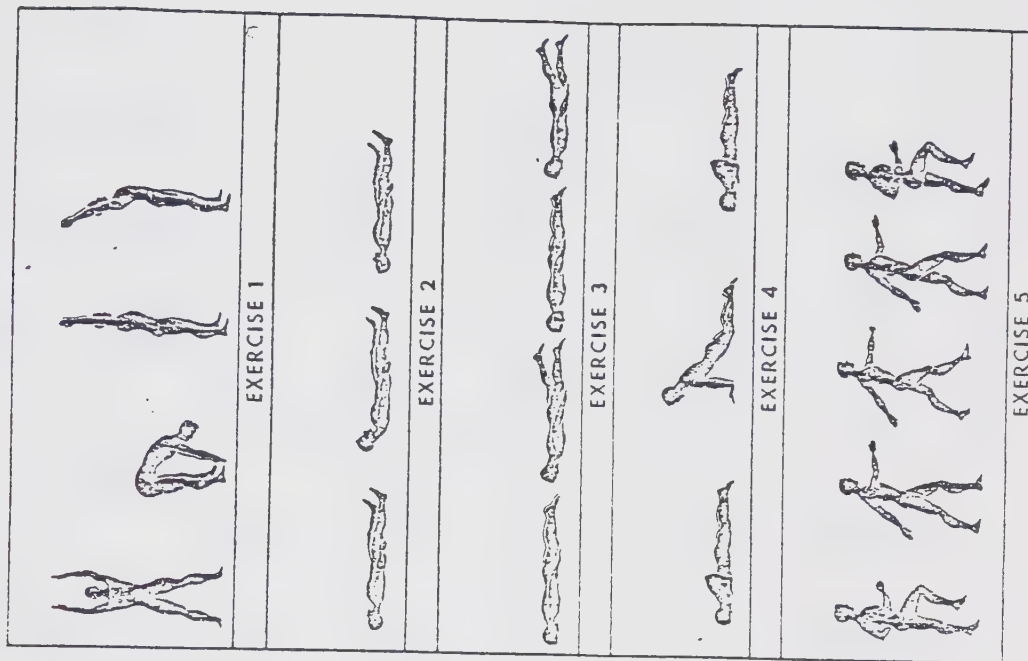 EXERCISE 1
EXERCISE 2
EXERCISE 3
EXERCISE 4
EXERCISE 5